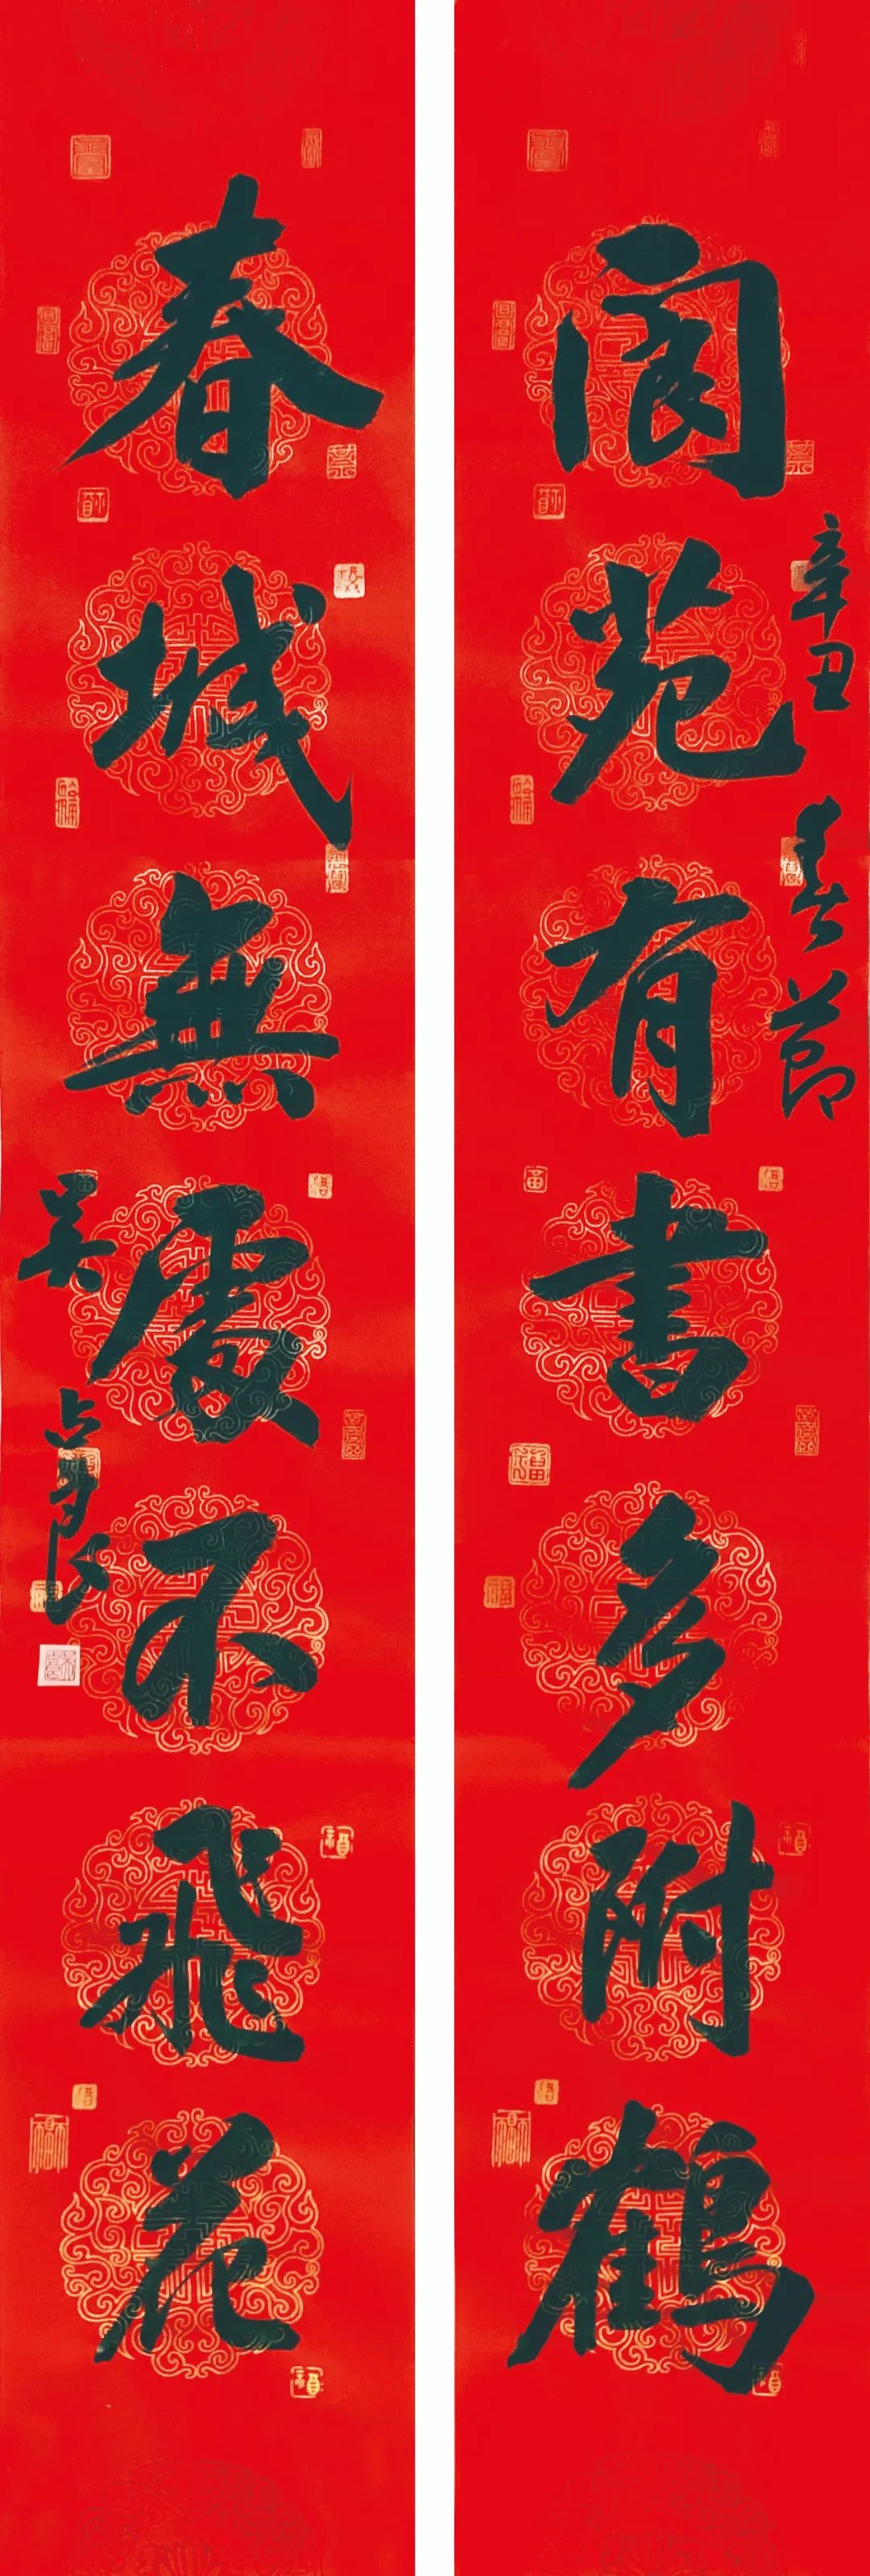 閬苑有書多附鶴
辛丑春節
春城無處不飛花
吴占良